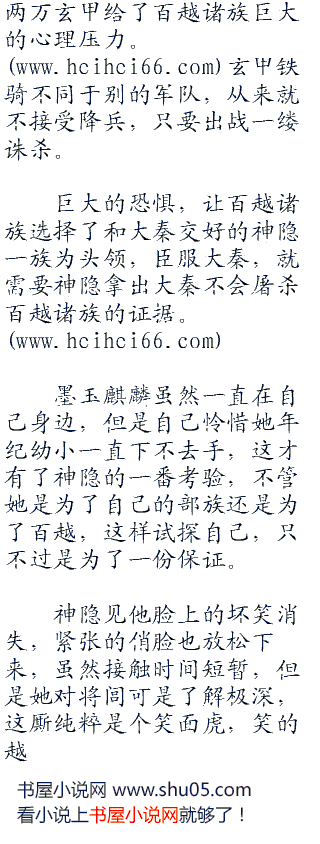 两万玄甲给了百越诸族巨大
的心理压力。
(www.hcihci66.com)玄甲铁
骑不同于别的军队，从来就
不接受降兵，只要出战一缕
诛杀。
巨大的恐惧，让百越诸
族选择了和大秦交好的神隐
一族为头领，臣服大秦，就
需要神隐拿出大秦不会屠杀
百越诸族的证据。
(www.hcihci66.com)
墨玉麒麟虽然一直在自
己身边，但是自己怜惜她年
纪幼小一直下不去手，这才
有了神隐的一番考验，不管
她是为了自己的部族还是为
了百越，这样试探自己，只
不过是为了一份保证。
神隐见他脸上的坏笑消
失，紧张的俏脸也放松下
来，虽然接触时间短暂，但
是她对将闾可是了解极深，
这厮纯粹是个笑面虎，笑的
越
书屋小说网 www.shu05.com
看小说上书屋小说网就够了！